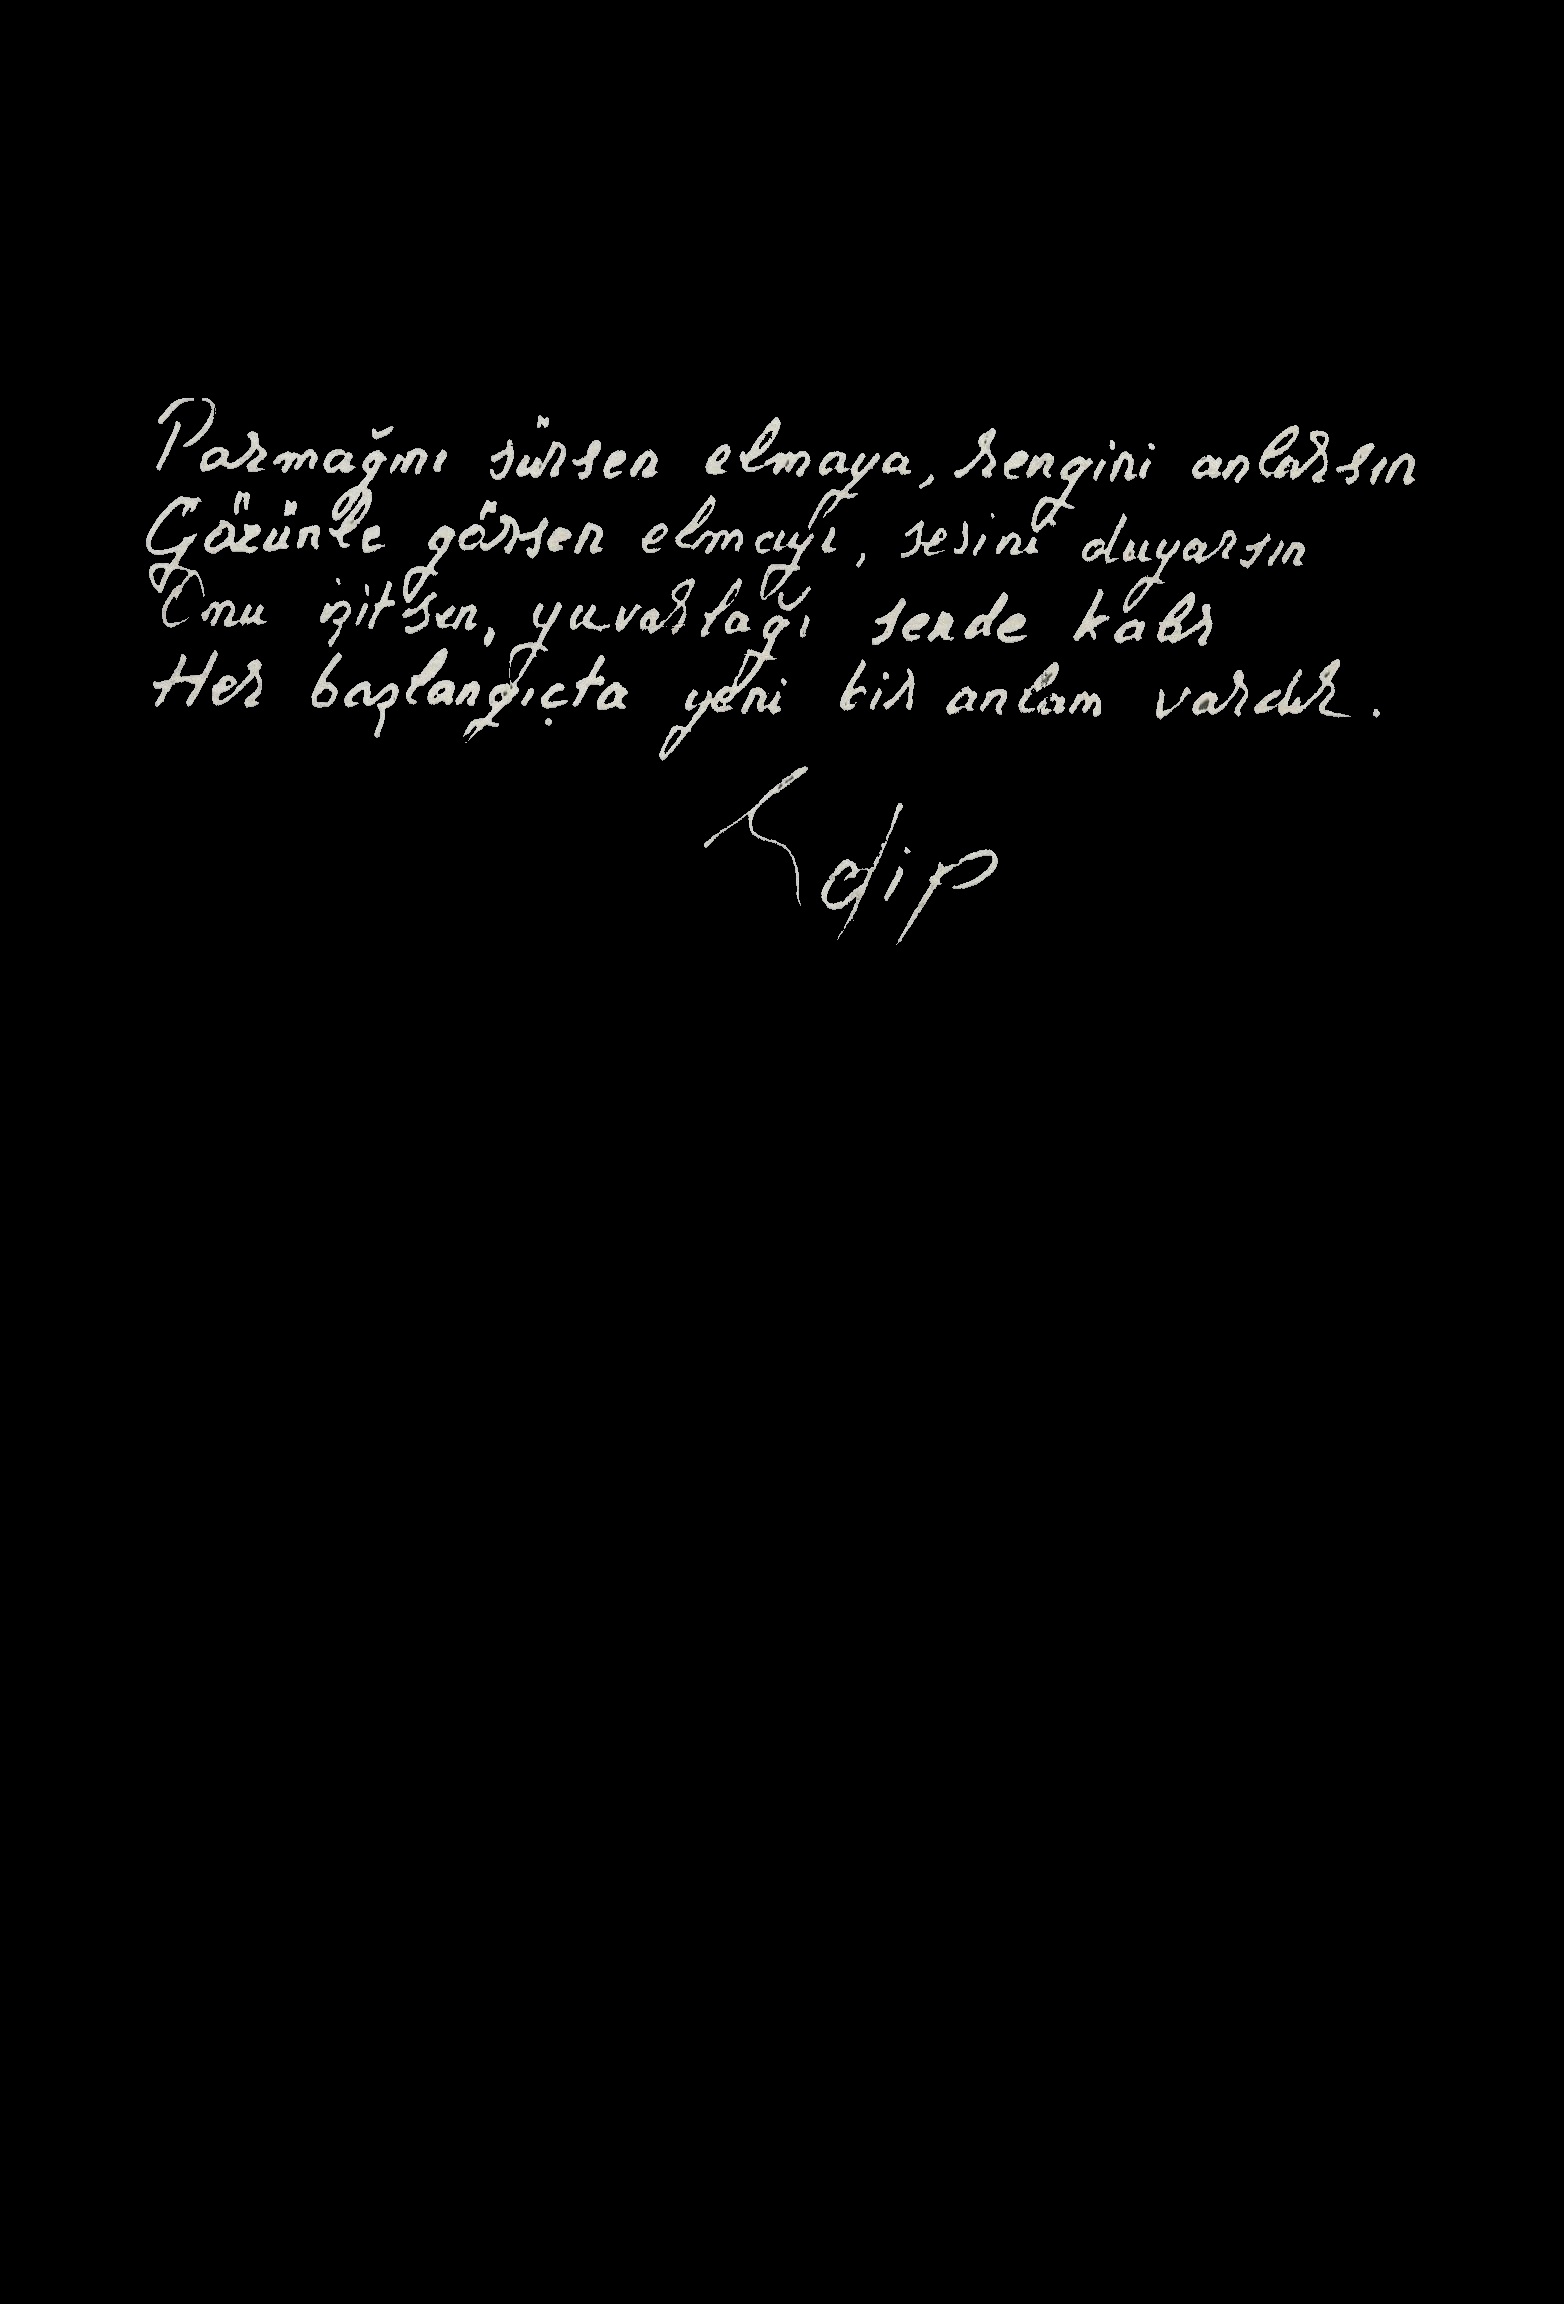 Parmağını sürsen elmaya, rengini anlarsın
Gözünle görsen elmayı, sesini duyarsın
Onu işitsen, yuvarlağı sende kalır
Her başlangıçta yeni bir anlam vardır.
Edip